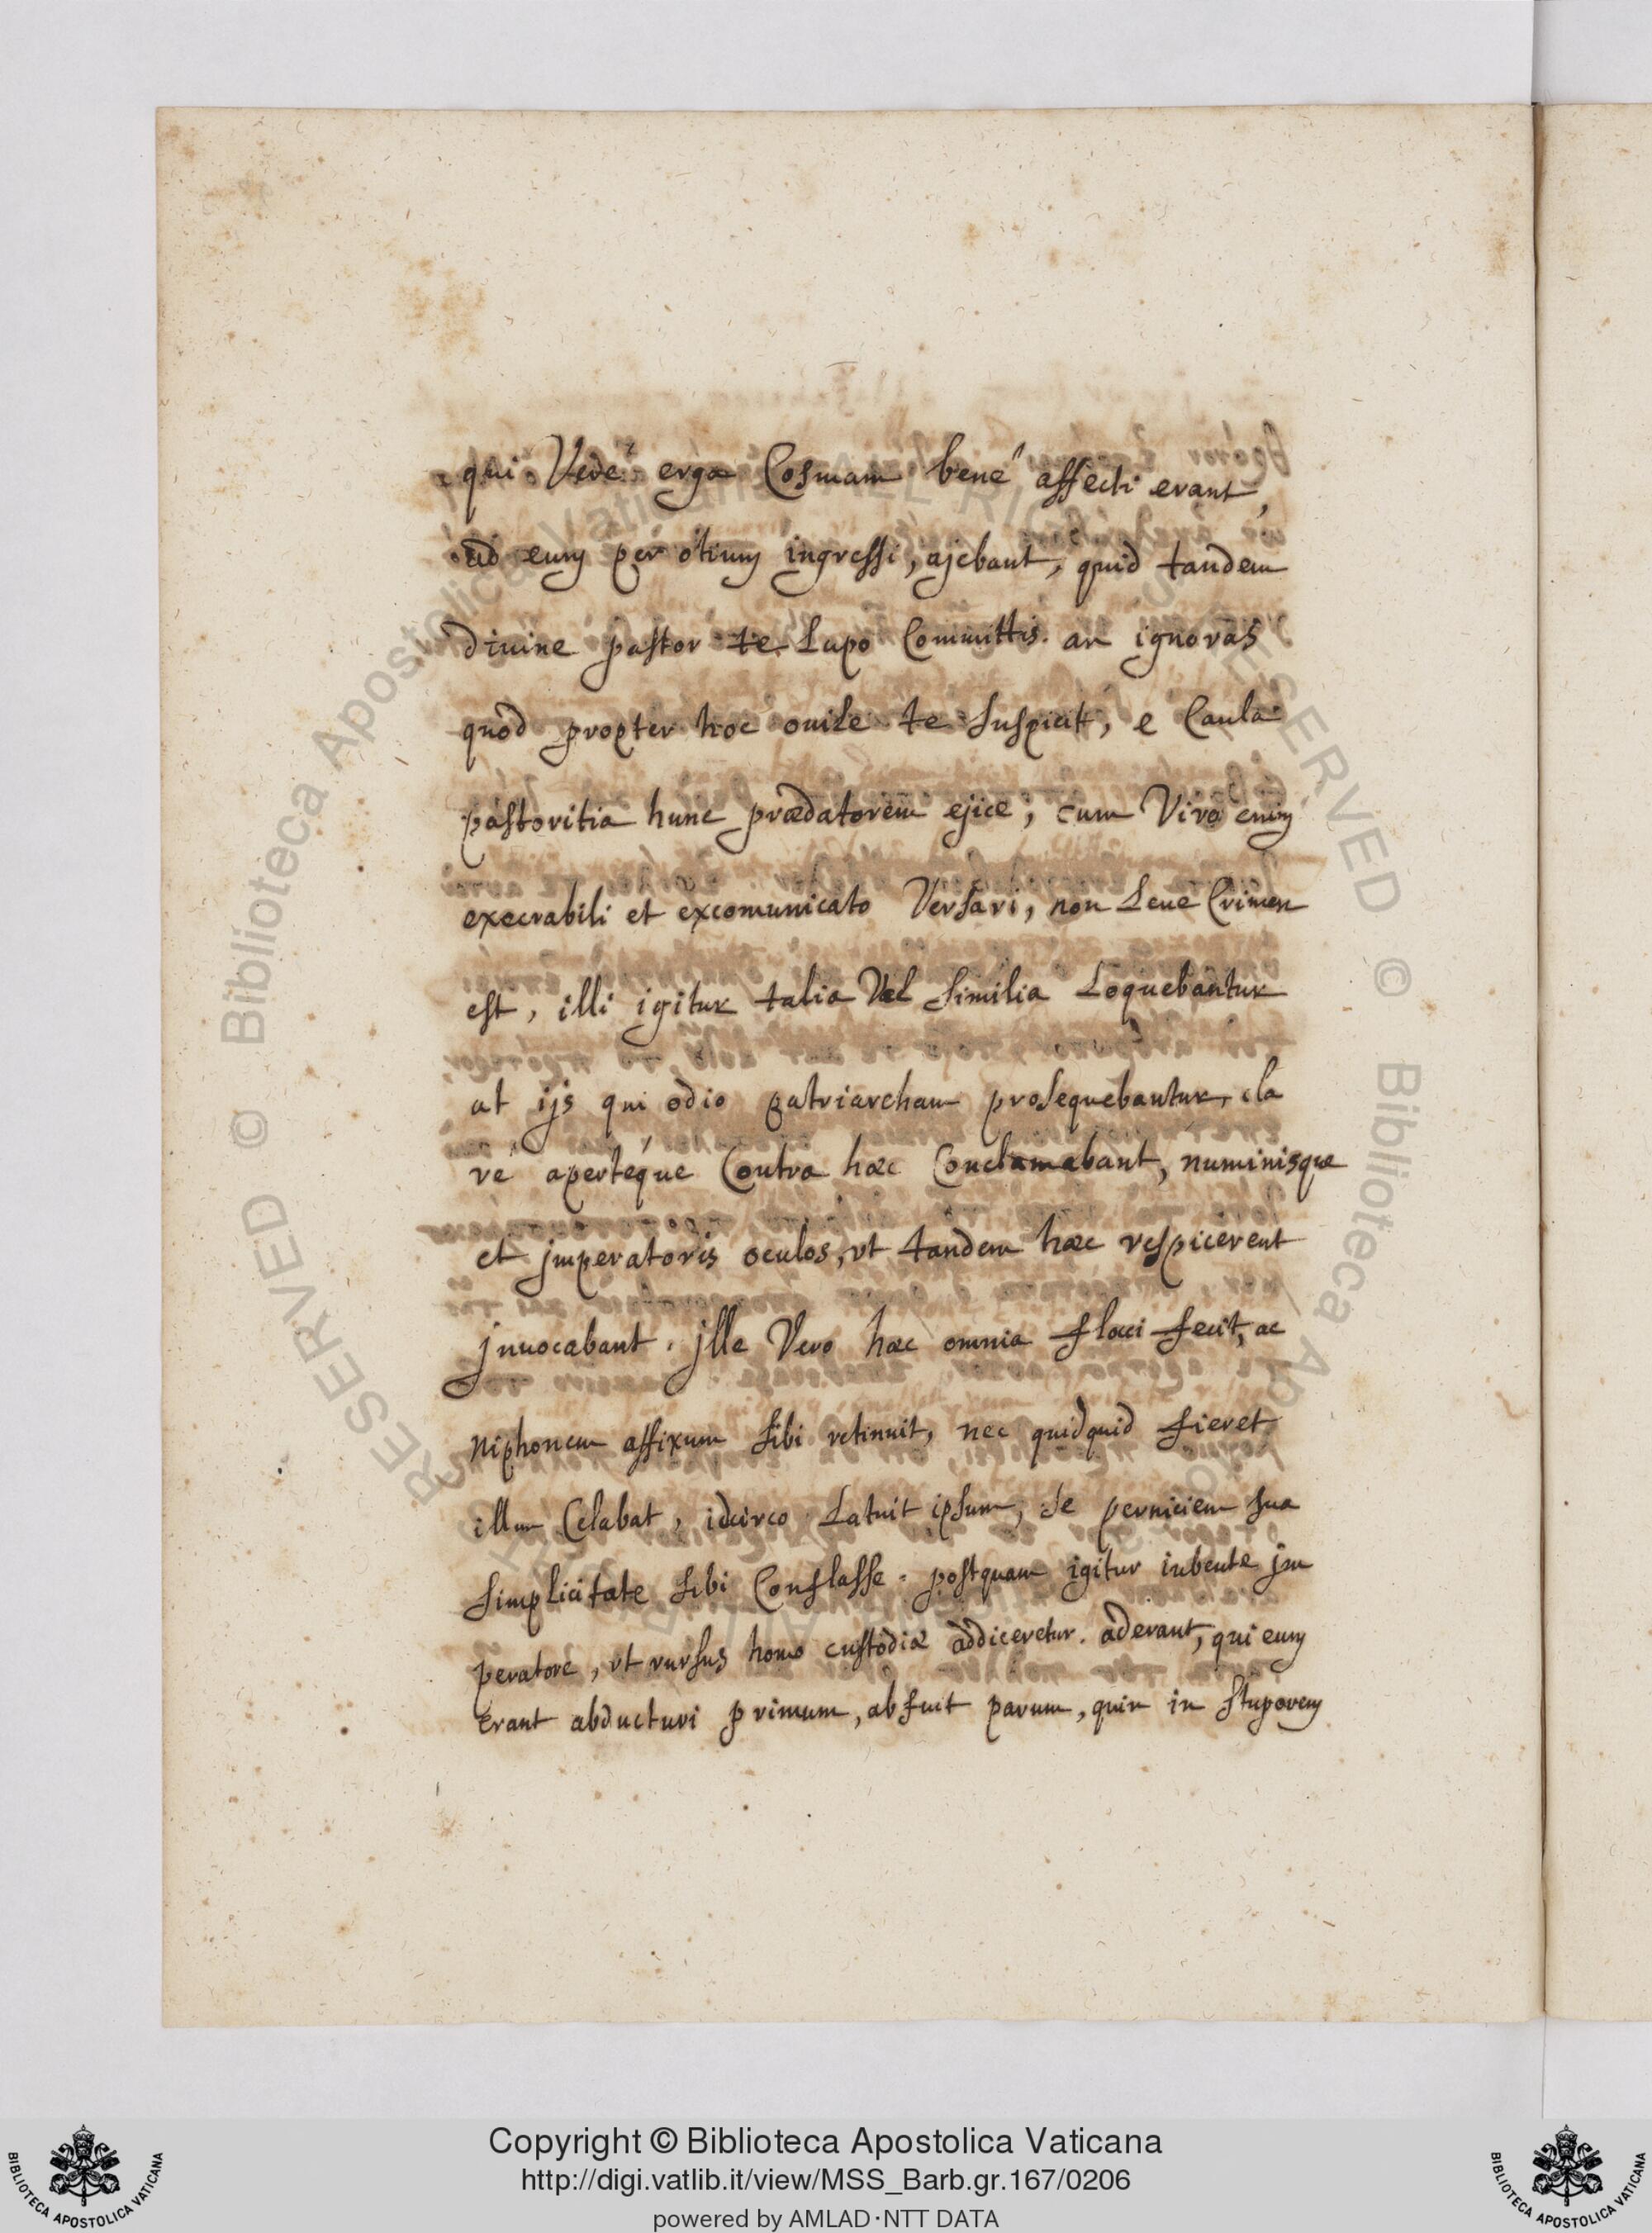 qui Vere erga Cosmam bene affecti erant,
ad eum per otium ingressi, ajebant, quid tandem
diuine pastor te Lupo Committis. an ignoras
quod propter hoc ouile te suspicit, e Caula
pastoritia hunc prædatorem ejice, cum Viro enim
execrabili et excomunicato Versari, non Leue Crimen
est, illi igitur talia Vel similia Loquebantur
at ijs qui odio patriarcham prosequebantur, cla
ré apertéque Contra hæc Conclamabant, numinisque
et jmperatoris oculos, vt tandem hæc respicerent
jnuocabant. jlle Vero hæc omnia flocci fecit, ac
niphonem affixum sibi retinuit, nec quidquid fieret
illum Celabat, idcirco Latuit ipsum, se perniciem sua
simplicitate sibi Conflasse. postquam igitur iubente jm
peratore, vt rursus homo custodiæ addiceretur. aderant, qui eum
erant abducturi primum, abfuit parum, quin in stuporem
Copyright © Biblioteca Apostolica Vaticana
http://digi.vatlib.it/view/MSS_Barb.gr.167/0206
powered by AMLAD·NTT DATA